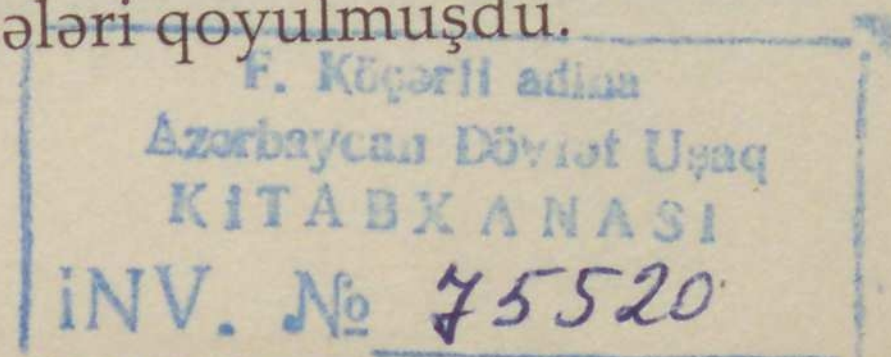 ələri qoyulmuşdu.
F. Köçərli adına
Azərbaycan Dövlət Uşaq
KİTABXANASI
İNV. № 75520